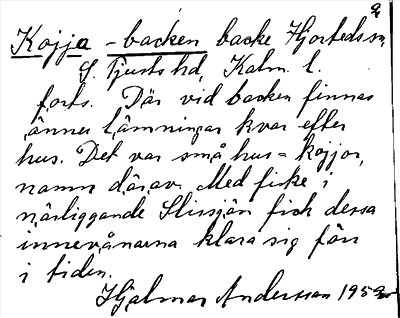 Kojja-backen backe Hjorteds sn,
S. Tjusts hd, Kalm. l.
forts. Där vid backen finnas
ännu lämningar kvar efter
hus. Det var små hus = kojjor,
namn därav. Med fiske i
närliggande Slissjön fick dessa
innevånarna klara sig förr
i tiden.
Hjalmar Andersson 1959